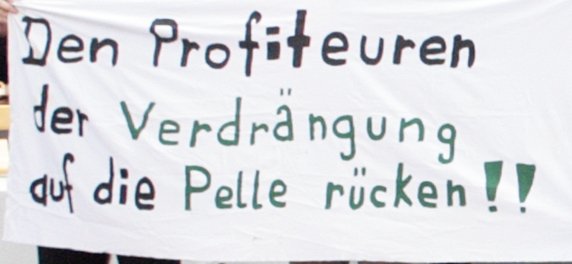 Den Profiteuren
der Verdrängung
auf die Pelle rücken!!